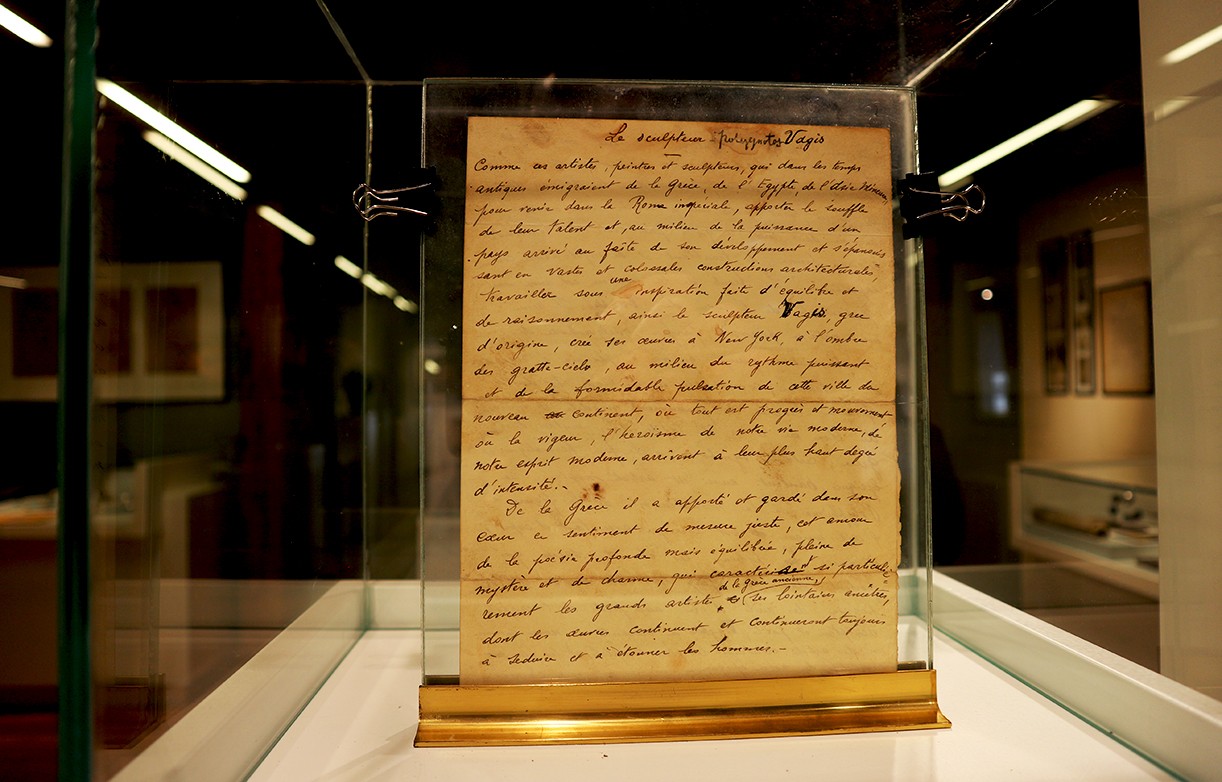 Le sculpteur polygnotos Vagis
Comme ces artistes, peintres et sculpteurs, qui dans les temps
antiques émigraient de la Grèce, de l'Egypte, de l'Asie Mineure,
pour venir dans la Rome impériale, apporter le souffle
de leur talent et, au milieu de la puissance d'un
pays arrivé au faîte de son développement et s'épanouis
sant en vastes et colossales constructions architecturales,
travailler sous une inspiration faite d'équilibre et
de raisonnement, ainsi le sculpteur Vagis, grec
d'origine, crée ses œuvres à New York, à l'ombre
des gratte-ciels, au milieu du rythme puissant
et de la formidable pulsation de cette ville du
nouveau continent, où tout est progrès et mouvement
où la vigueur, l'heroïsme de notre vie moderne, de
notre esprit moderne, arrivent à leur plus haut degré
d'intensité.-
De la Grèce il a apporté et gardé dans son
cœur ce sentiment de mesure juste, cet amour
de la poésie profonde mais équilibrée, pleine de
mystère et de charme, qui si particuliè
rement les grands artistes de la Grèce ancienne, ses lointains ancêtres,
dont les œuvres continuent et continueront toujours
à séduire et à étonner les hommes.-